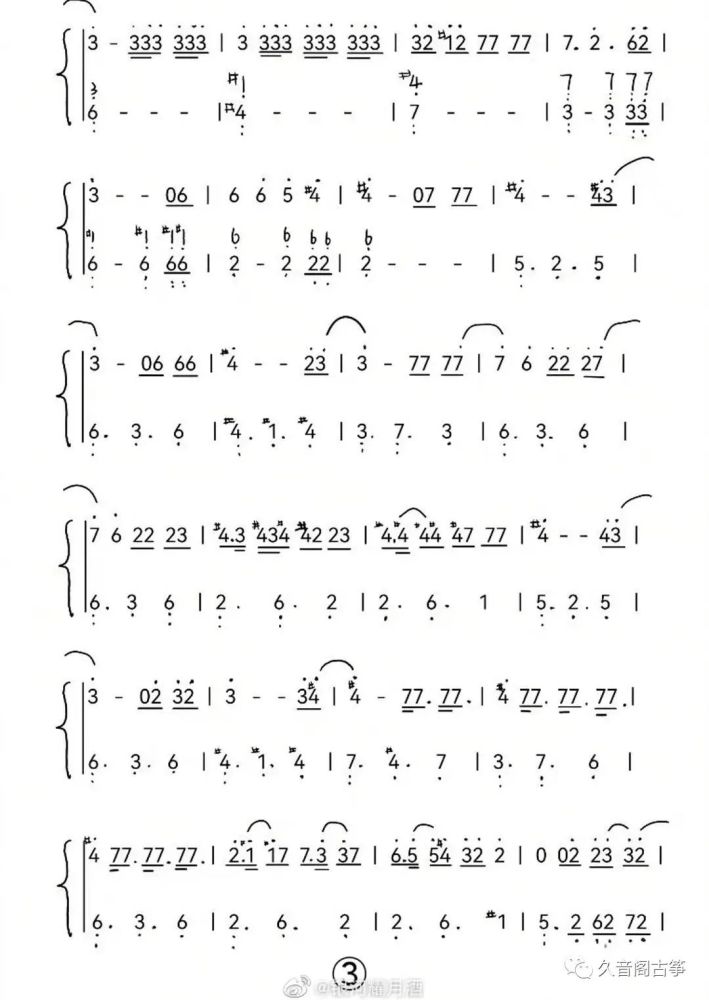 3 - 333 333 | 3 333 333 333 | 32 #12 77 77 | 7. 2. 62 |
3 #1 #4 7 7 77
6 - - - | #4 - - - | 7 - - - | 3 - 3 33 |
3 - - 06 | 6 6 5 #4 | #4 - 07 77 | #4 - - #43 |
#1 #1 #1#1 6 6 66 6
6 - 6 66 | 2 - 2 22 | 2 - - - | 5. 2. 5 |
3 - 06 66 | #4 - - 23 | 3 - 77 77 | 7 6 22 27 |
6. 3. 6 | #4. #1. #4 | 3. 7. 3 | 6. 3. 6 |
7 6 22 23 | #4.3 #43#4 #42 23 | #4.#4 #44 #47 77 | #4 - - 43 |
6. 3 6 | 2. 6. 2 | 2. 6. 1 | 5. 2. 5 |
3 - 02 32 | 3 - - 3#4 | #4 - 77. 77. | #4 77. 77. 77. |
6. 3. 6 | #4. #1. #4 | 7. #4. 7 | 3. 7. 6 |
#4 77. 77. 77. | 2.#1 #17 7.3 37 | 6.5 5#4 32 2 | 0 02 23 32 |
6. 3. 6 | 2. 6. 2 | 2. 6. #1 | 5. 2 62 72 |
③
久音阁古筝